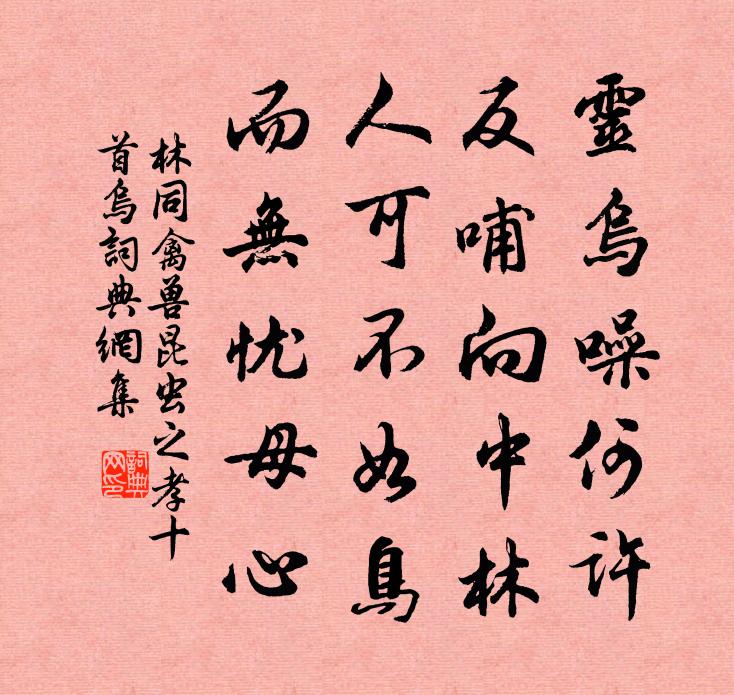 靈烏噪何許
反哺向中林
人可不如鳥
而無忧母心
林同禽兽昆虫之孝十
首烏詞典網集
詞典
网印